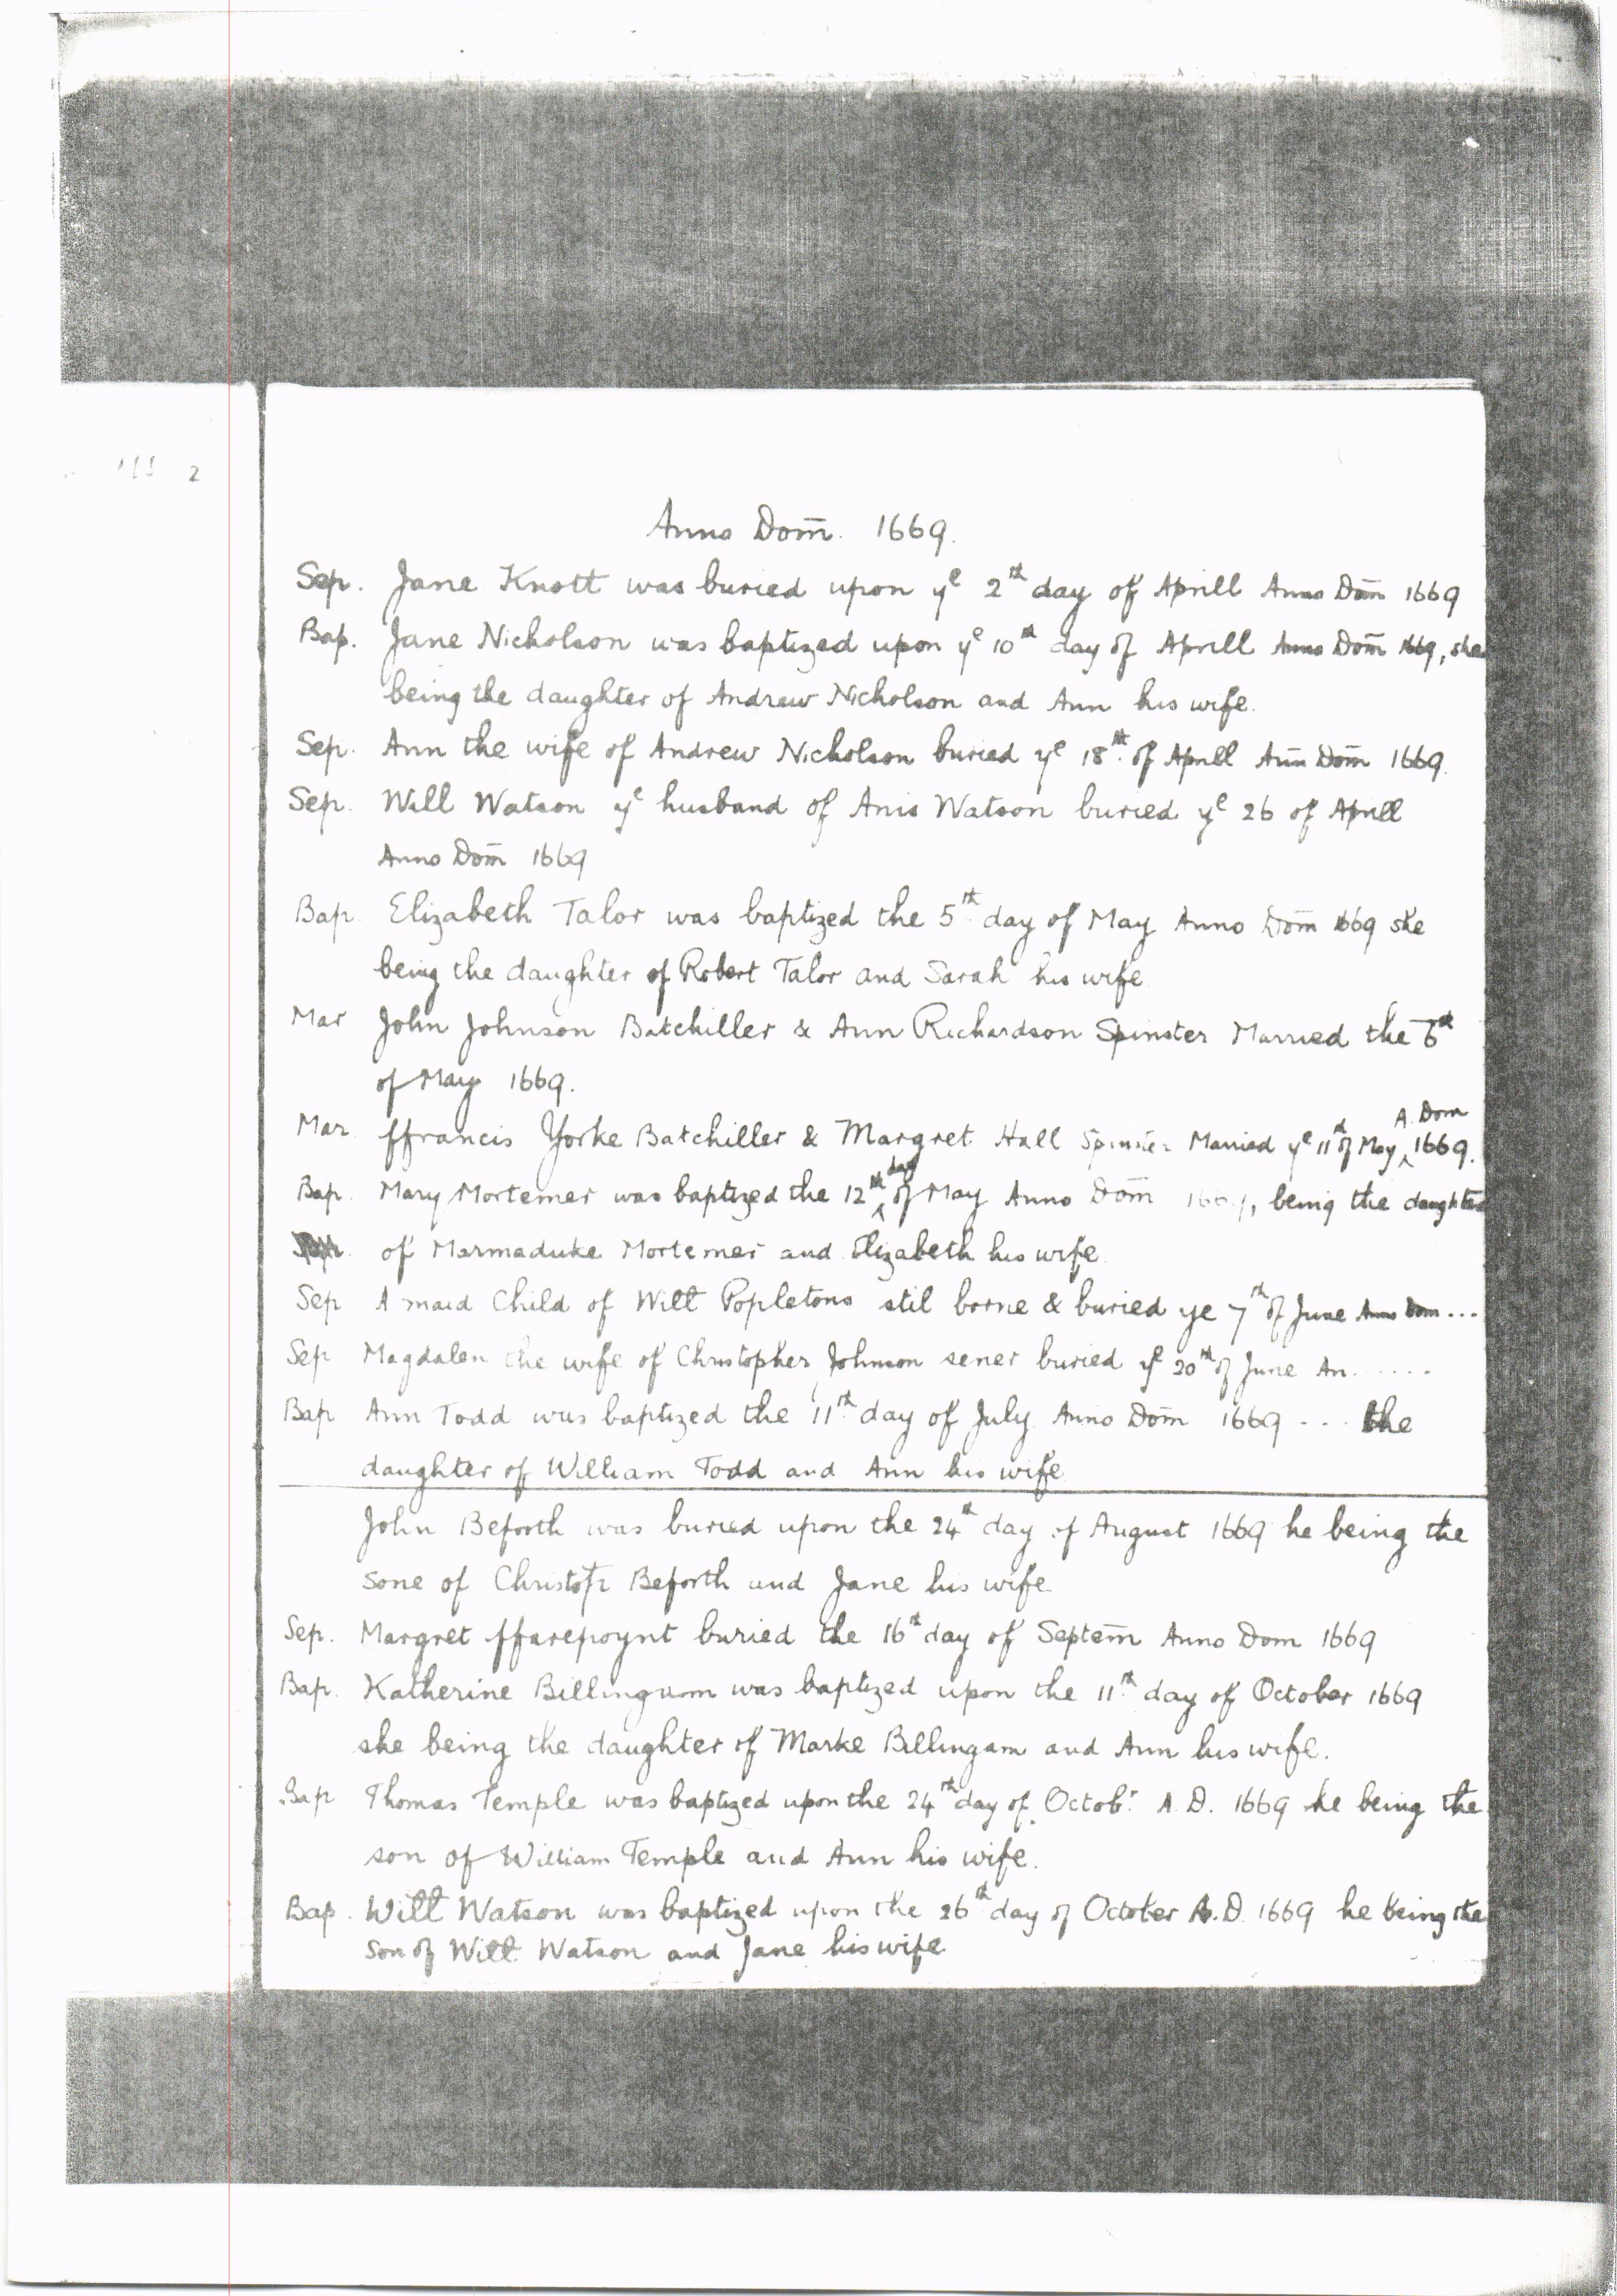 2
Anno Dom̄. 1669.
Sep. Jane Knott was buried upon yᵉ 2ᵗʰ day of Aprill Anno Dom̄ 1669
Bap. Jane Nicholson was baptized upon yᵉ 10ᵗʰ day of Aprill Anno Dom̄ 1669, she
being the daughter of Andrew Nicholson and Ann his wife.
Sep. Ann the wife of Andrew Nicholson buried yᵉ 18ᵗʰ of Aprill Ann̄ Dom̄ 1669.
Sep. Will Watson yᵉ husband of Anis Watson buried yᵉ 26 of Aprill
Anno Dom̄ 1669
Bap. Elizabeth Talor was baptized the 5ᵗʰ day of May Anno Dom̄ 1669 she
being the daughter of Robert Talor and Sarah his wife
Mar John Johnson Batchiller & Ann Richardson Spinster Married the 6ᵗʰ
of May 1669.
A. Dom
Mar. ffrancis Yorke Batchiller & Margret Hall Spinster Married yᵉ 11ᵗʰ of May ‸ 1669.
day
Bap. Mary Mortemer was baptized the 12ᵗʰ ‸ of May Anno Dom̄ 1669, being the daughter
of Marmaduke Mortemer and Elizabeth his wife.
Sep A maid Child of Will Popletons stil borne & buried ye 7ᵗʰ of June Anno Dom...
Sep Magdalen the wife of Christopher Johnson sener buried yᵉ 20ᵗʰ of June An......
Bap Ann Todd was baptized the 11ᵗʰ day of July Anno Dom̄ 1669 ... the
daughter of William Todd and Ann his wife
John Beforth was buried upon the 24ᵗʰ day of August 1669 he being the
sone of Christofr Beforth and Jane his wife.
Sep. Margret ffarepoynt buried the 16ᵗʰ day of Septem̄ Anno Dom 1669
Bap. Katherine Billinguom was baptized upon the 11ᵗʰ day of October 1669
she being the daughter of Marke Billingam and Ann his wife.
Bap Thomas Temple was baptized upon the 24ᵗʰ day of Octobʳ A.D. 1669 he being the
son of William Temple and Ann his wife.
Bap. Will Watson was baptized upon the 26ᵗʰ day of October A.D. 1669 he being the
son of Will Watson and Jane his wife